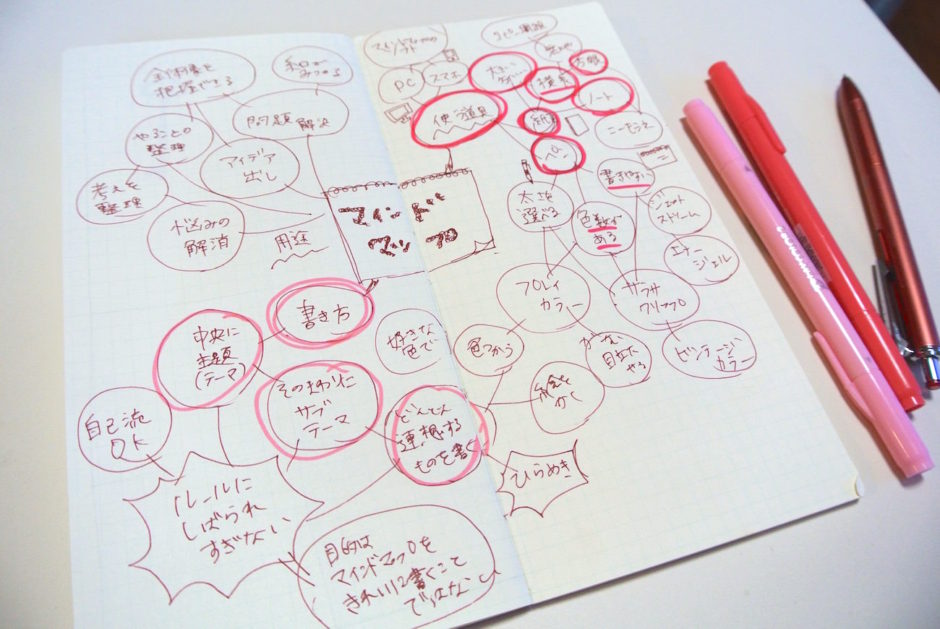 全体像を
把握できる
問題解決
やることの
整理
アイデア
出し
考えを
整理
悩みの
解消
用途
マインド
マップ
書き方
中央に
主題
(テーマ)
そのまわりに
サブ
テーマ
好きな
色で
自己流
OK
どんどん
連想する
ものを書く
ルールに
しばられ
すぎない
目的は
マインドマップを
きれいに書くこと
ではない
ひらめき
PC
スマホ
使う道具
紙
ノート
方眼
ペン
書きやすい
太さを
選べる
色数が
ある
ジェット
ストリーム
エナー
ジェル
プレイ
カラー
サラサ
クリップ
ビンテージ
カラー
色つかう
絵を
かく